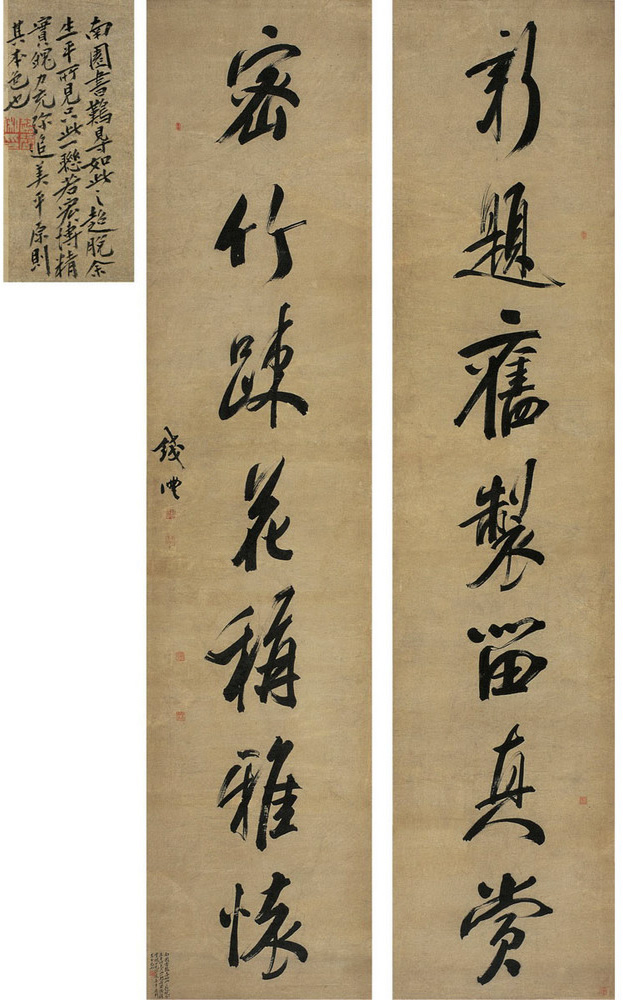 新題舊製留真賞
密竹踈花稱雅懷
錢灃
南園書難得如此之超脫余
生平所見只此一聯若宏博精
實魄力充弥追美平原則
其本色也